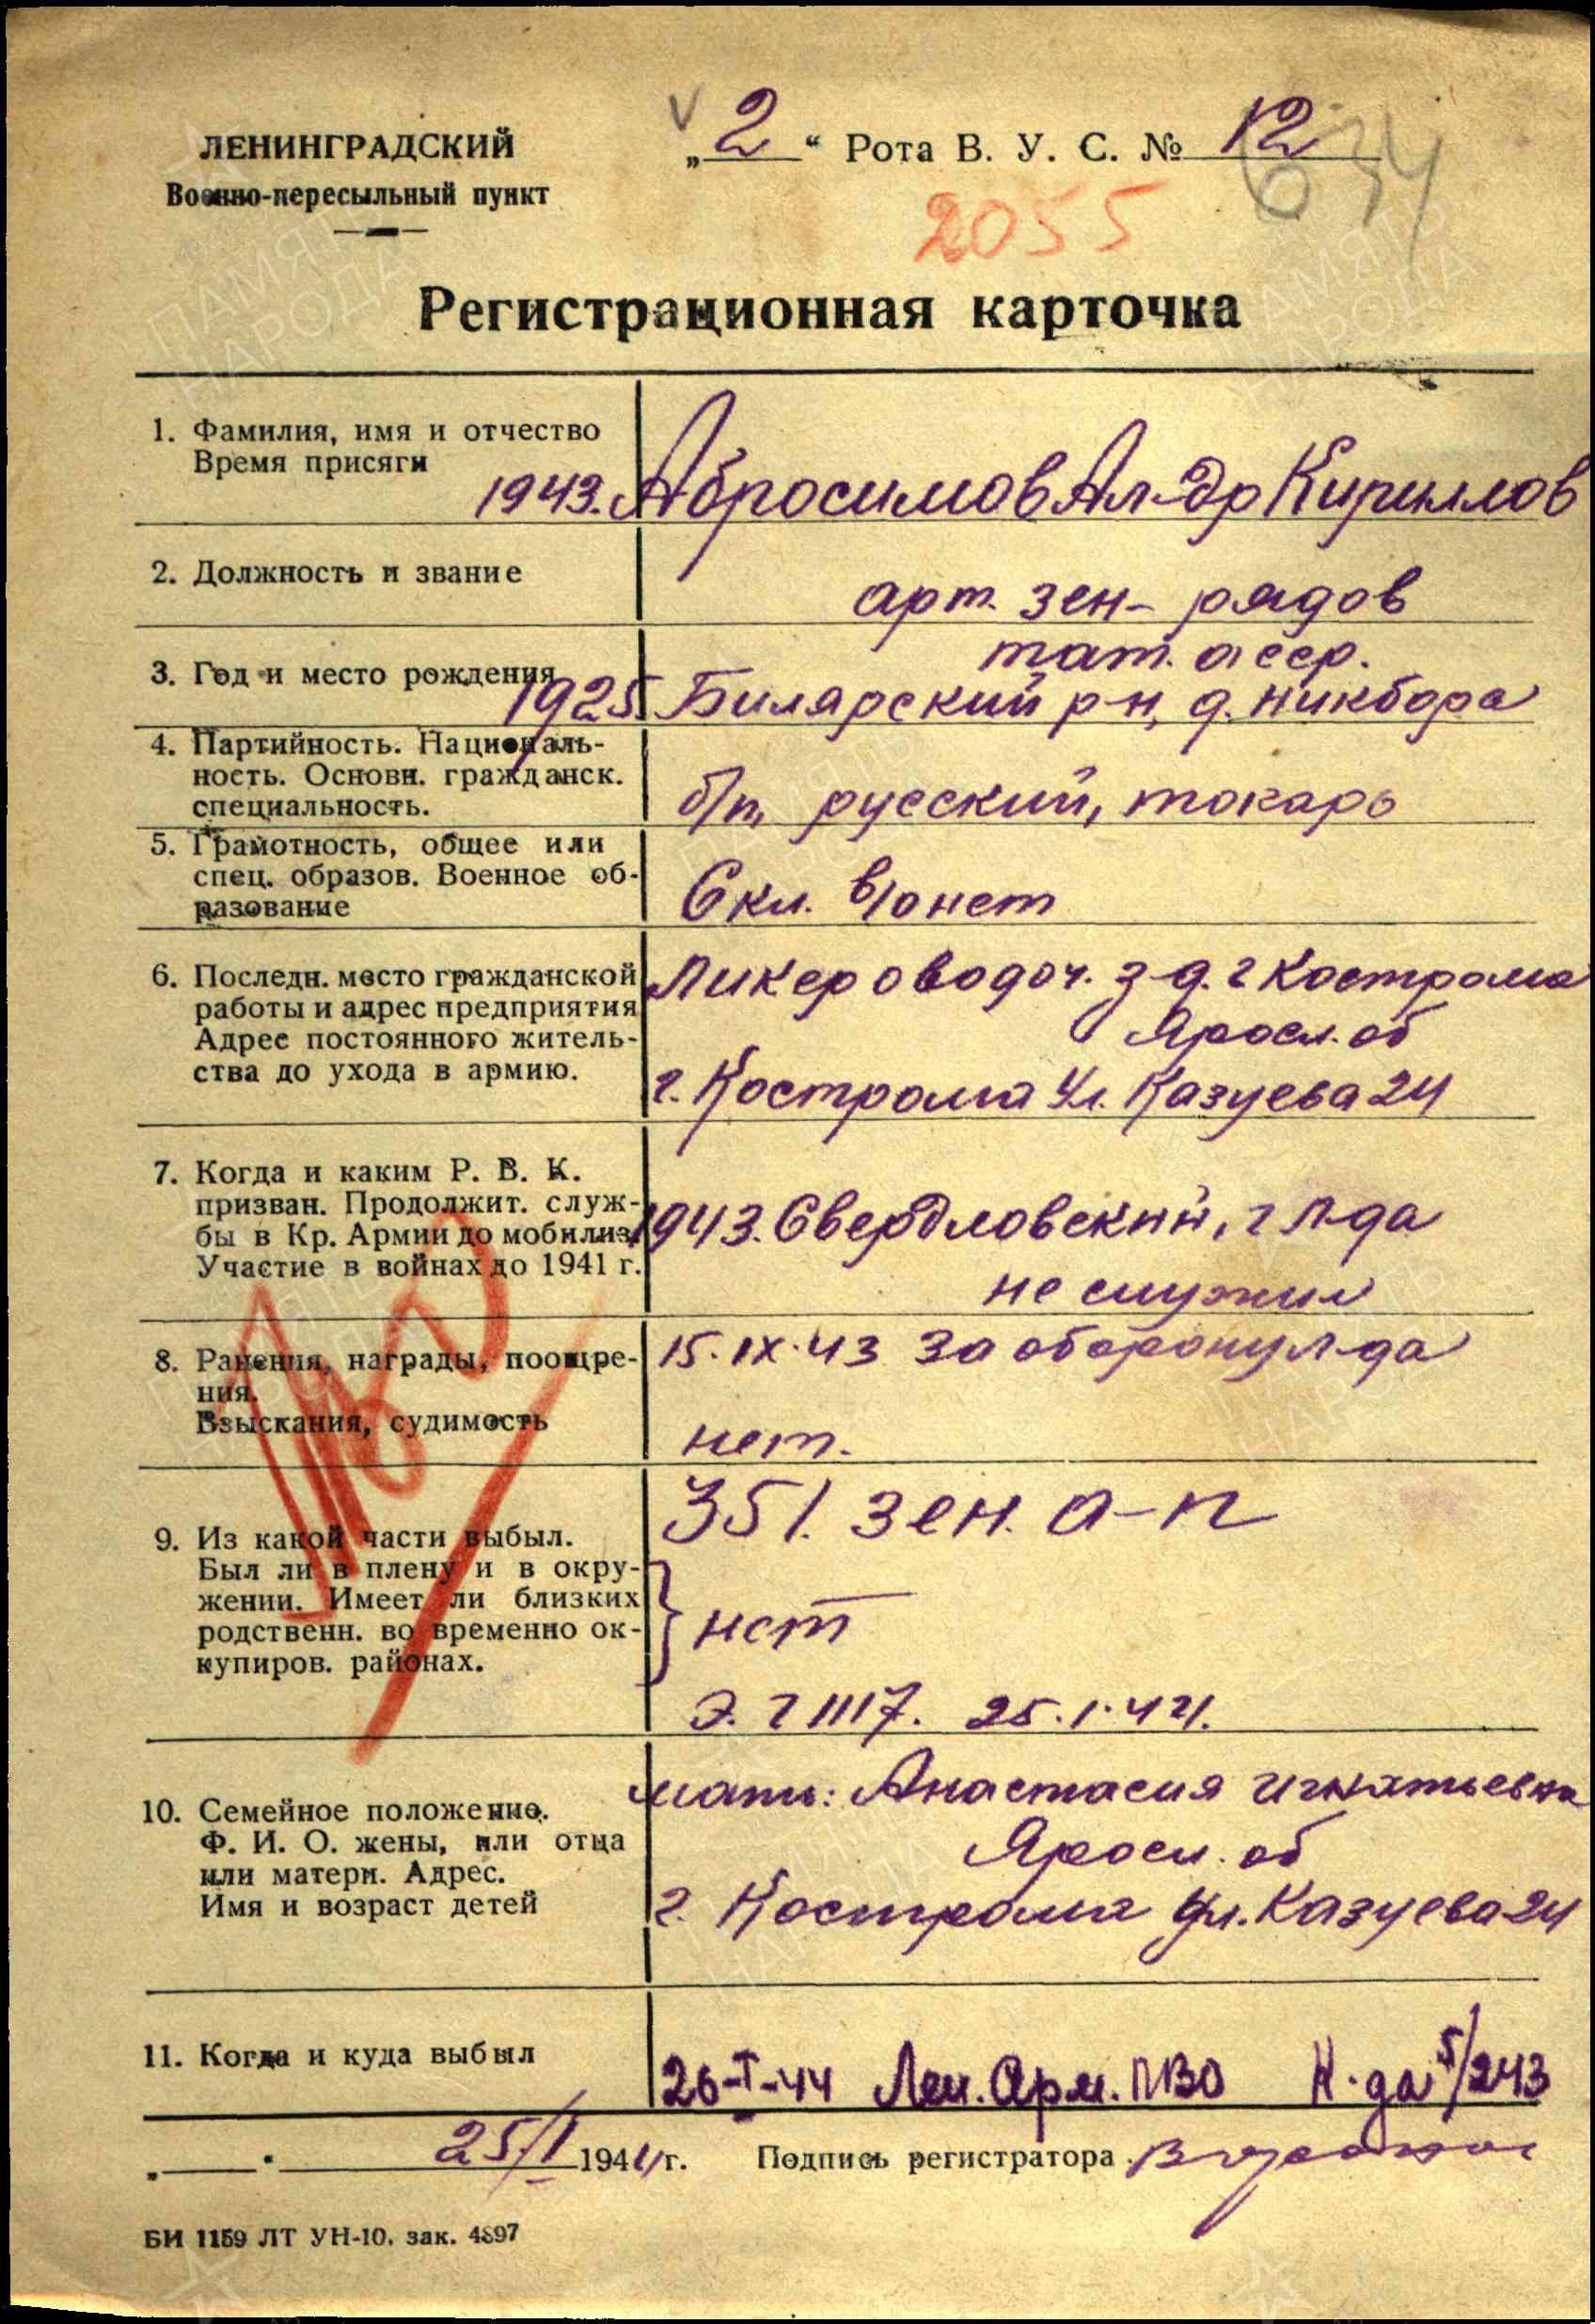 ЛЕНИНГРАДСКИЙ
Военно-пересыльный пункт
„2“ Рота В. У. С. № 12
634
2055
Регистрационная карточка
1. Фамилия, имя и отчество
Время присяги
1943. Абросимов Ал-др Кириллов
2. Должность и звание
арт. зен- рядов
тат. асср.
3. Год и место рождения
1925 Билярский р-н, д. Никбора
4. Партийность. Националь-
ность. Основн. гражданск.
специальность.
б/п, русский, токарь
5. Грамотность, общее или
спец. образов. Военное об-
разование
6 кл. в/о нет
6. Последн. место гражданской
работы и адрес предприятия
Адрес постоянного житель-
ства до ухода в армию.
Ликероводоч. з-д. г Кострома
Яросл. об
г. Кострома ул. Казуева 24
7. Когда и каким Р. В. К.
призван. Продолжит. служ-
бы в Кр. Армии до мобилиз.
Участие в войнах до 1941 г.
1943. Свердловский, г Л-да
не служил
8. Ранения, награды, поощре-
ния.
Взыскания, судимость
15.IX.43 За оборону Л-да
нет.
9. Из какой части выбыл.
Был ли в плену и в окру-
жении. Имеет ли близких
родственн. во временно ок-
купиров. районах.
351. зен. а-п
} нет
Э. Г 1117. 25.1.44.
10. Семейное положение.
Ф. И. О. жены, или отца
или матери. Адрес.
Имя и возраст детей
мать: Анастасия Игнатьевна
Яросл. об
г. Кострома ул. Казуева 24
11. Когда и куда выбыл
26-I-44 Лен. Арм. ПВО Н-да 5/243
25/I 1944 г. Подпись регистратора
БИ 1159 ЛТ УН-10. зак. 4897
ПАМЯТЬ
НАРОДА